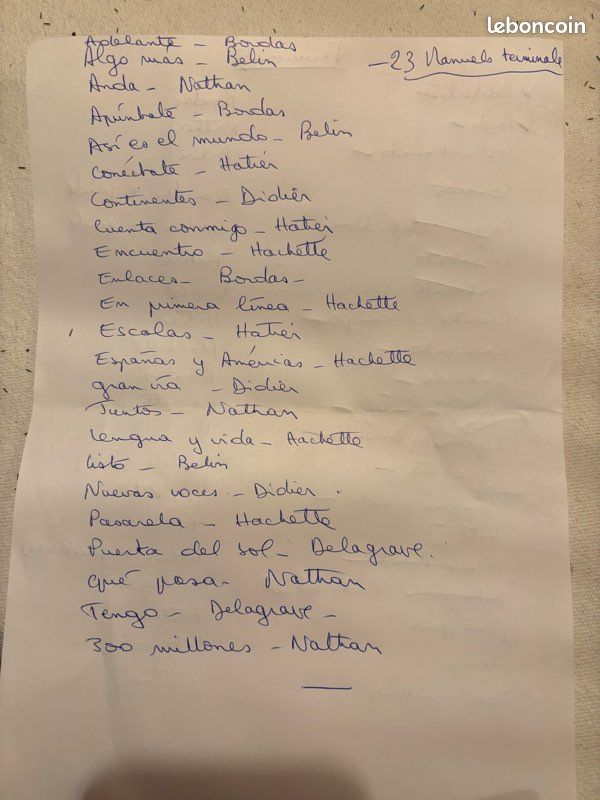 leboncoin
Adelante - Bordas
Algo más - Belin
- 23 Manuels terminale
Anda - Nathan
Apúntate - Bordas
Así es el mundo - Belin
Conéctate - Hatier
Continentes - Didier
Cuenta conmigo - Hatier
Encuentro - Hachette
Enlaces - Bordas -
En primera línea - Hachette
Escalas - Hatier
Españas y Américas - Hachette
gran vía - Didier
Juntos - Nathan
Lengua y vida - Hachette
listo - Belin
Nuevas voces - Didier.
Pasarela - Hachette
Puerta del sol - Delagrave.
qué pasa - Nathan
Tengo - Delagrave -
300 millones - Nathan